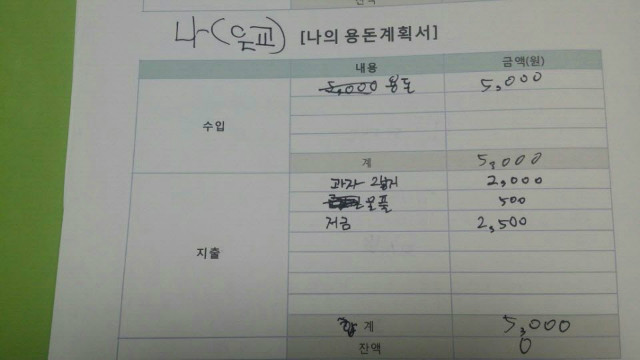 잔액
나(은교) [나의 용돈계획서]
내용 금액(원)
수입
용돈 5,000
계 5,000
지출
과자 2봉지 2,000
와플 500
저금 2,500
합계 5,000
잔액 0